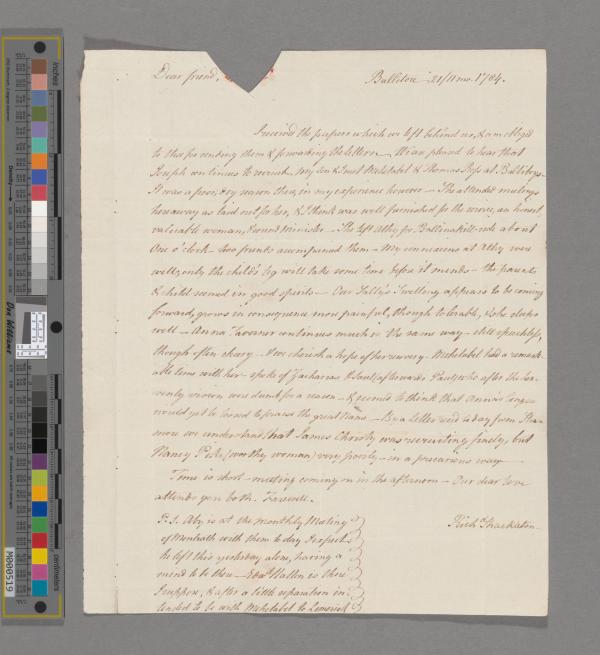 Dear friend,
Ballitore 21/11mo. 1784.
I received the papers which we left behind us, & am obliged
to thee for sending them & forwarding the letters — All are pleased to hear that
Joseph continues to recruit. My son & Mehetabel & Thomas at Ballibys.
It was a poor, dry season there, in my experience however — She attended meetings
hereaway as laid out for her, & I think was well furnished for the service, an honest,
valuable woman, & sound minister — She left Athy for Ballinakill-side about
One o'clock — two friends accompanied them — My connexions at Athy were
well, only the child's leg will take some time before it mends — the parents
& child seemed in good spirits — Our Sally's swelling appears to be coming
forward, grows in consequence more painful, though tolerable, & she sleeps
well — Anna Taverner continues much in the same way — still speechless,
though often cheary. — I cherish a hope of her recovery. Mehetabel had a remark-
able time with her — spoke of Zacharias & Saul (afterwards Paul) who after the hea-
venly vision were dumb for a season — & seemed to think that Anna's tongue
would yet be loosed to praise the great Name — By a letter recd to day from
we understand that James Christy was recruiting finely, but
Nancy Pike (worthy woman) very poorly — in a precarious way —
Time is short — meeting coming on in the afternoon — Our dear love
attends you both. Farewell.
Richd Shackleton
P.S. Aby. is at the Monthly Meeting
of Montrath with them to day I expect
he left this yesterday alone, having a
mind to be there — Edwd Hatten is there
I suppose, & after a little separation in-
tended to be with Mehetabel to Limerick
inches
centimeters
Density
Don Williams
M000519